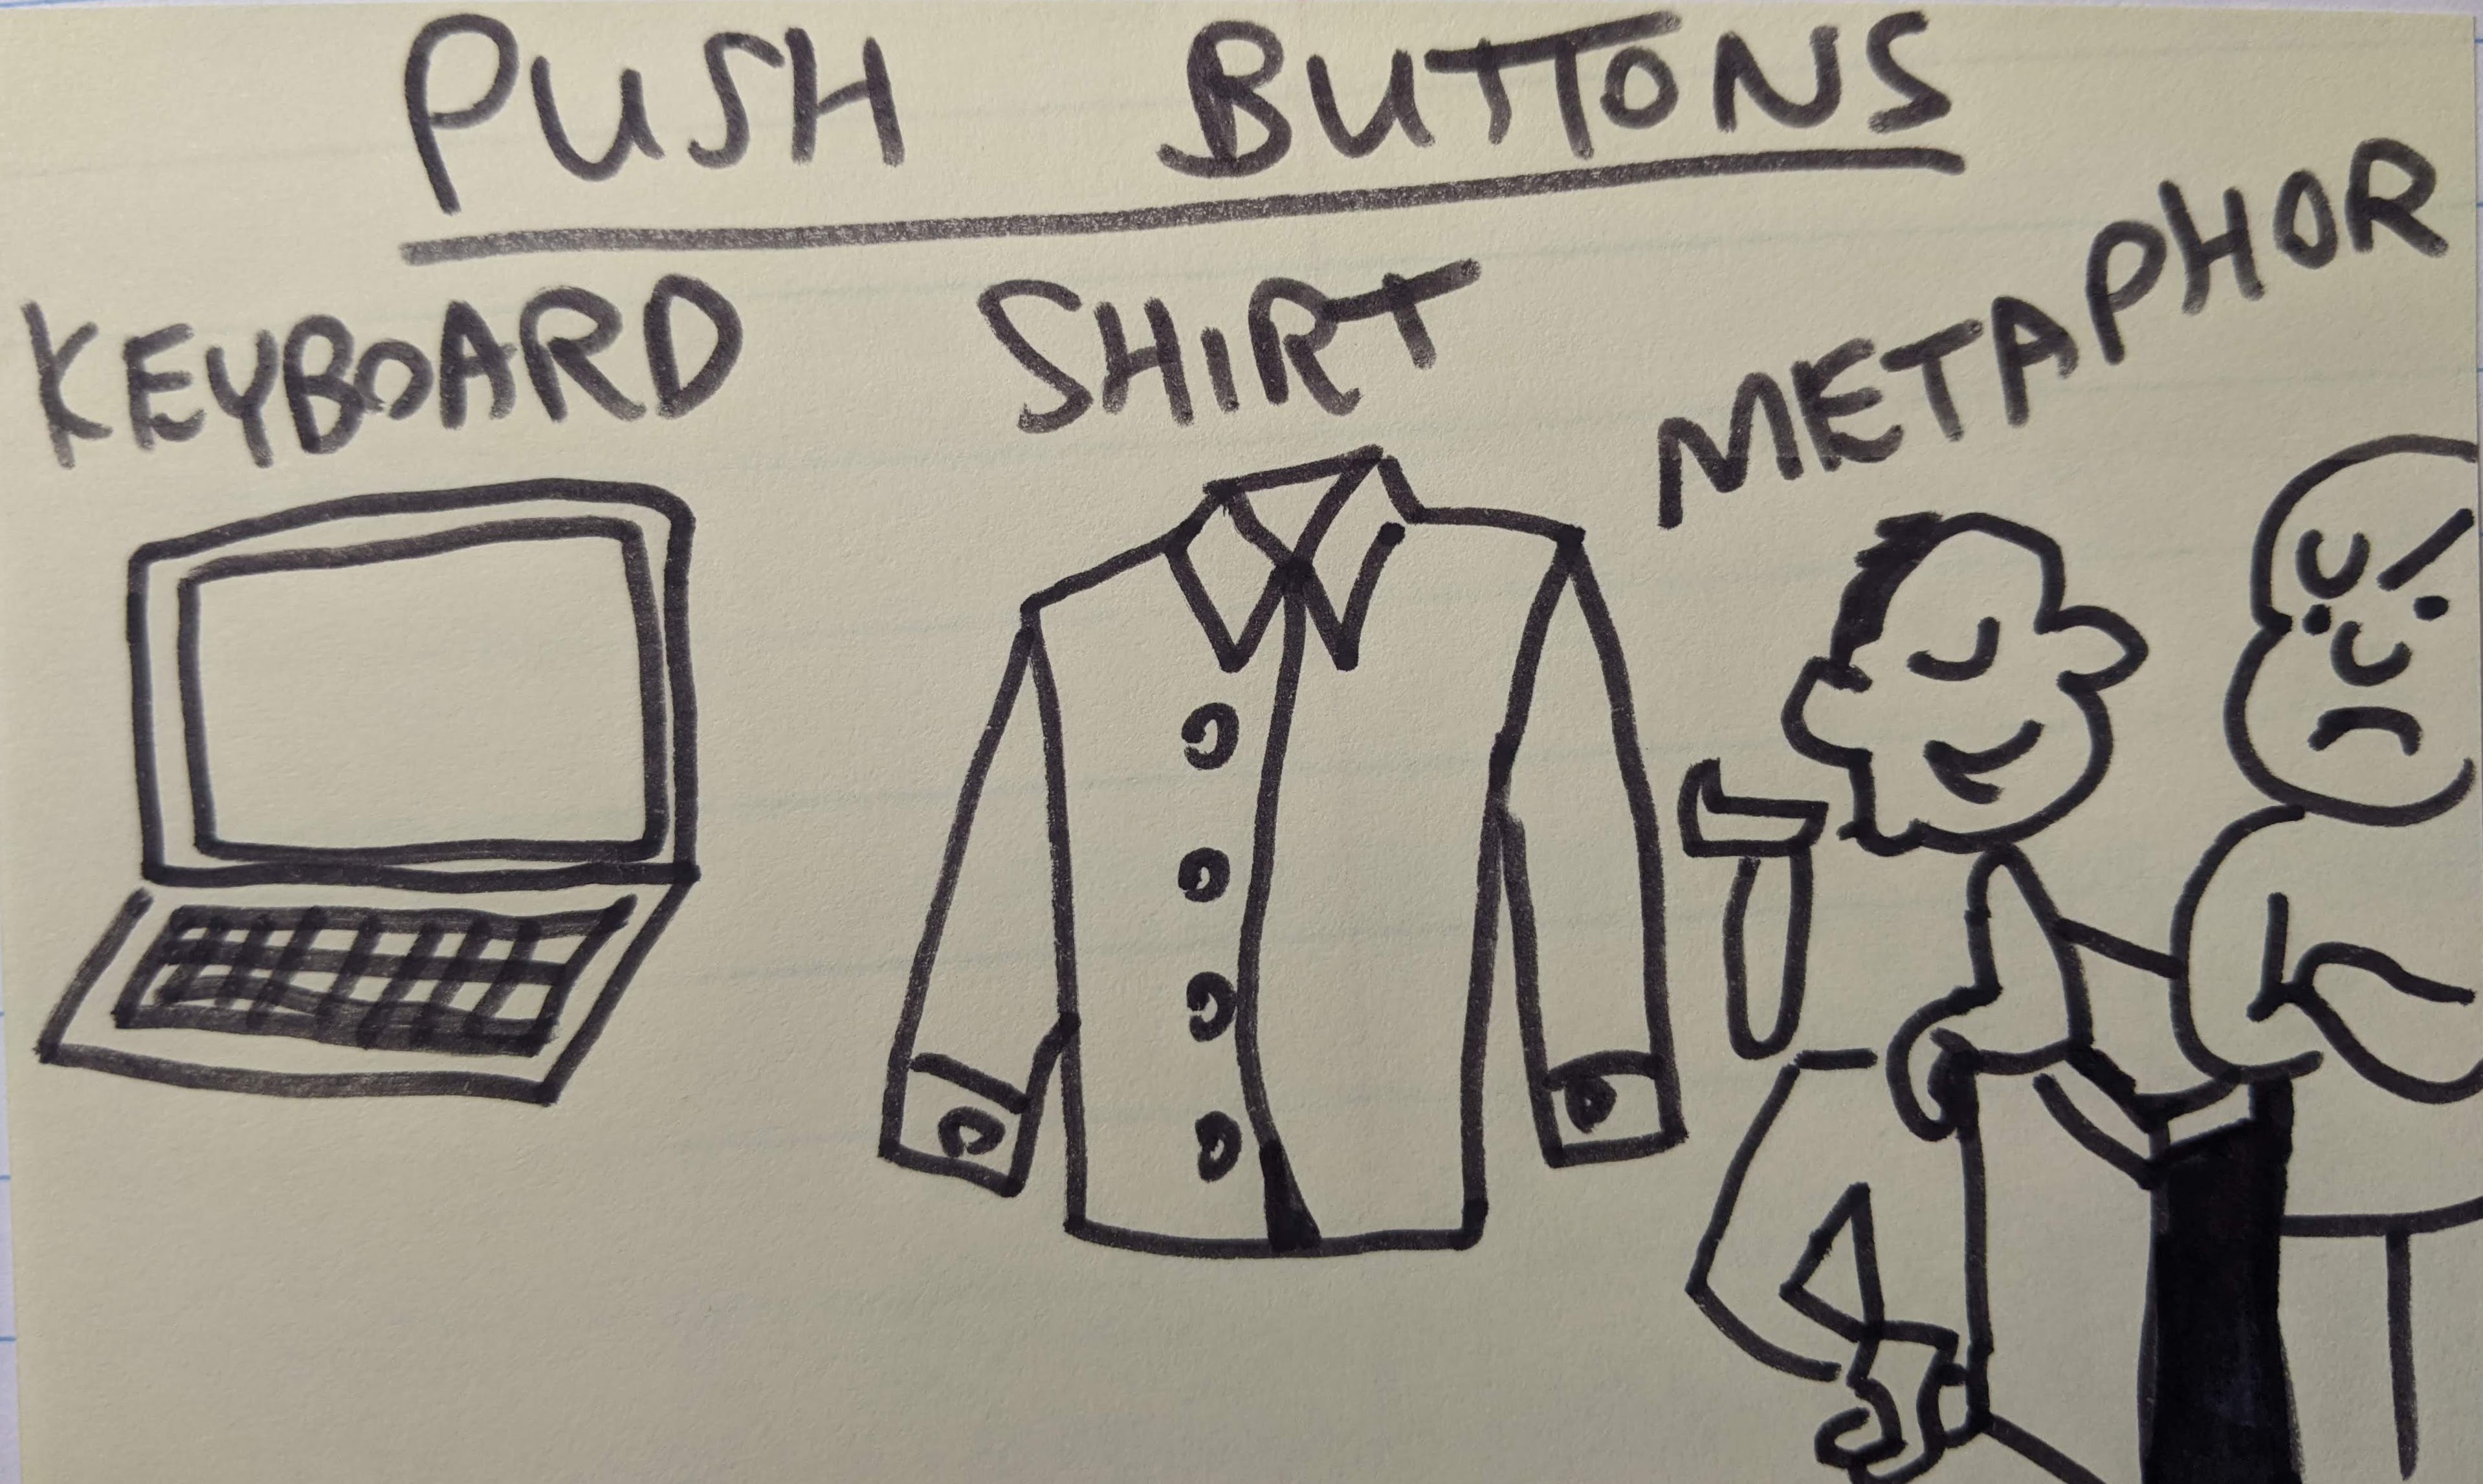 PUSH BUTTONS
KEYBOARD
SHIRT
METAPHOR